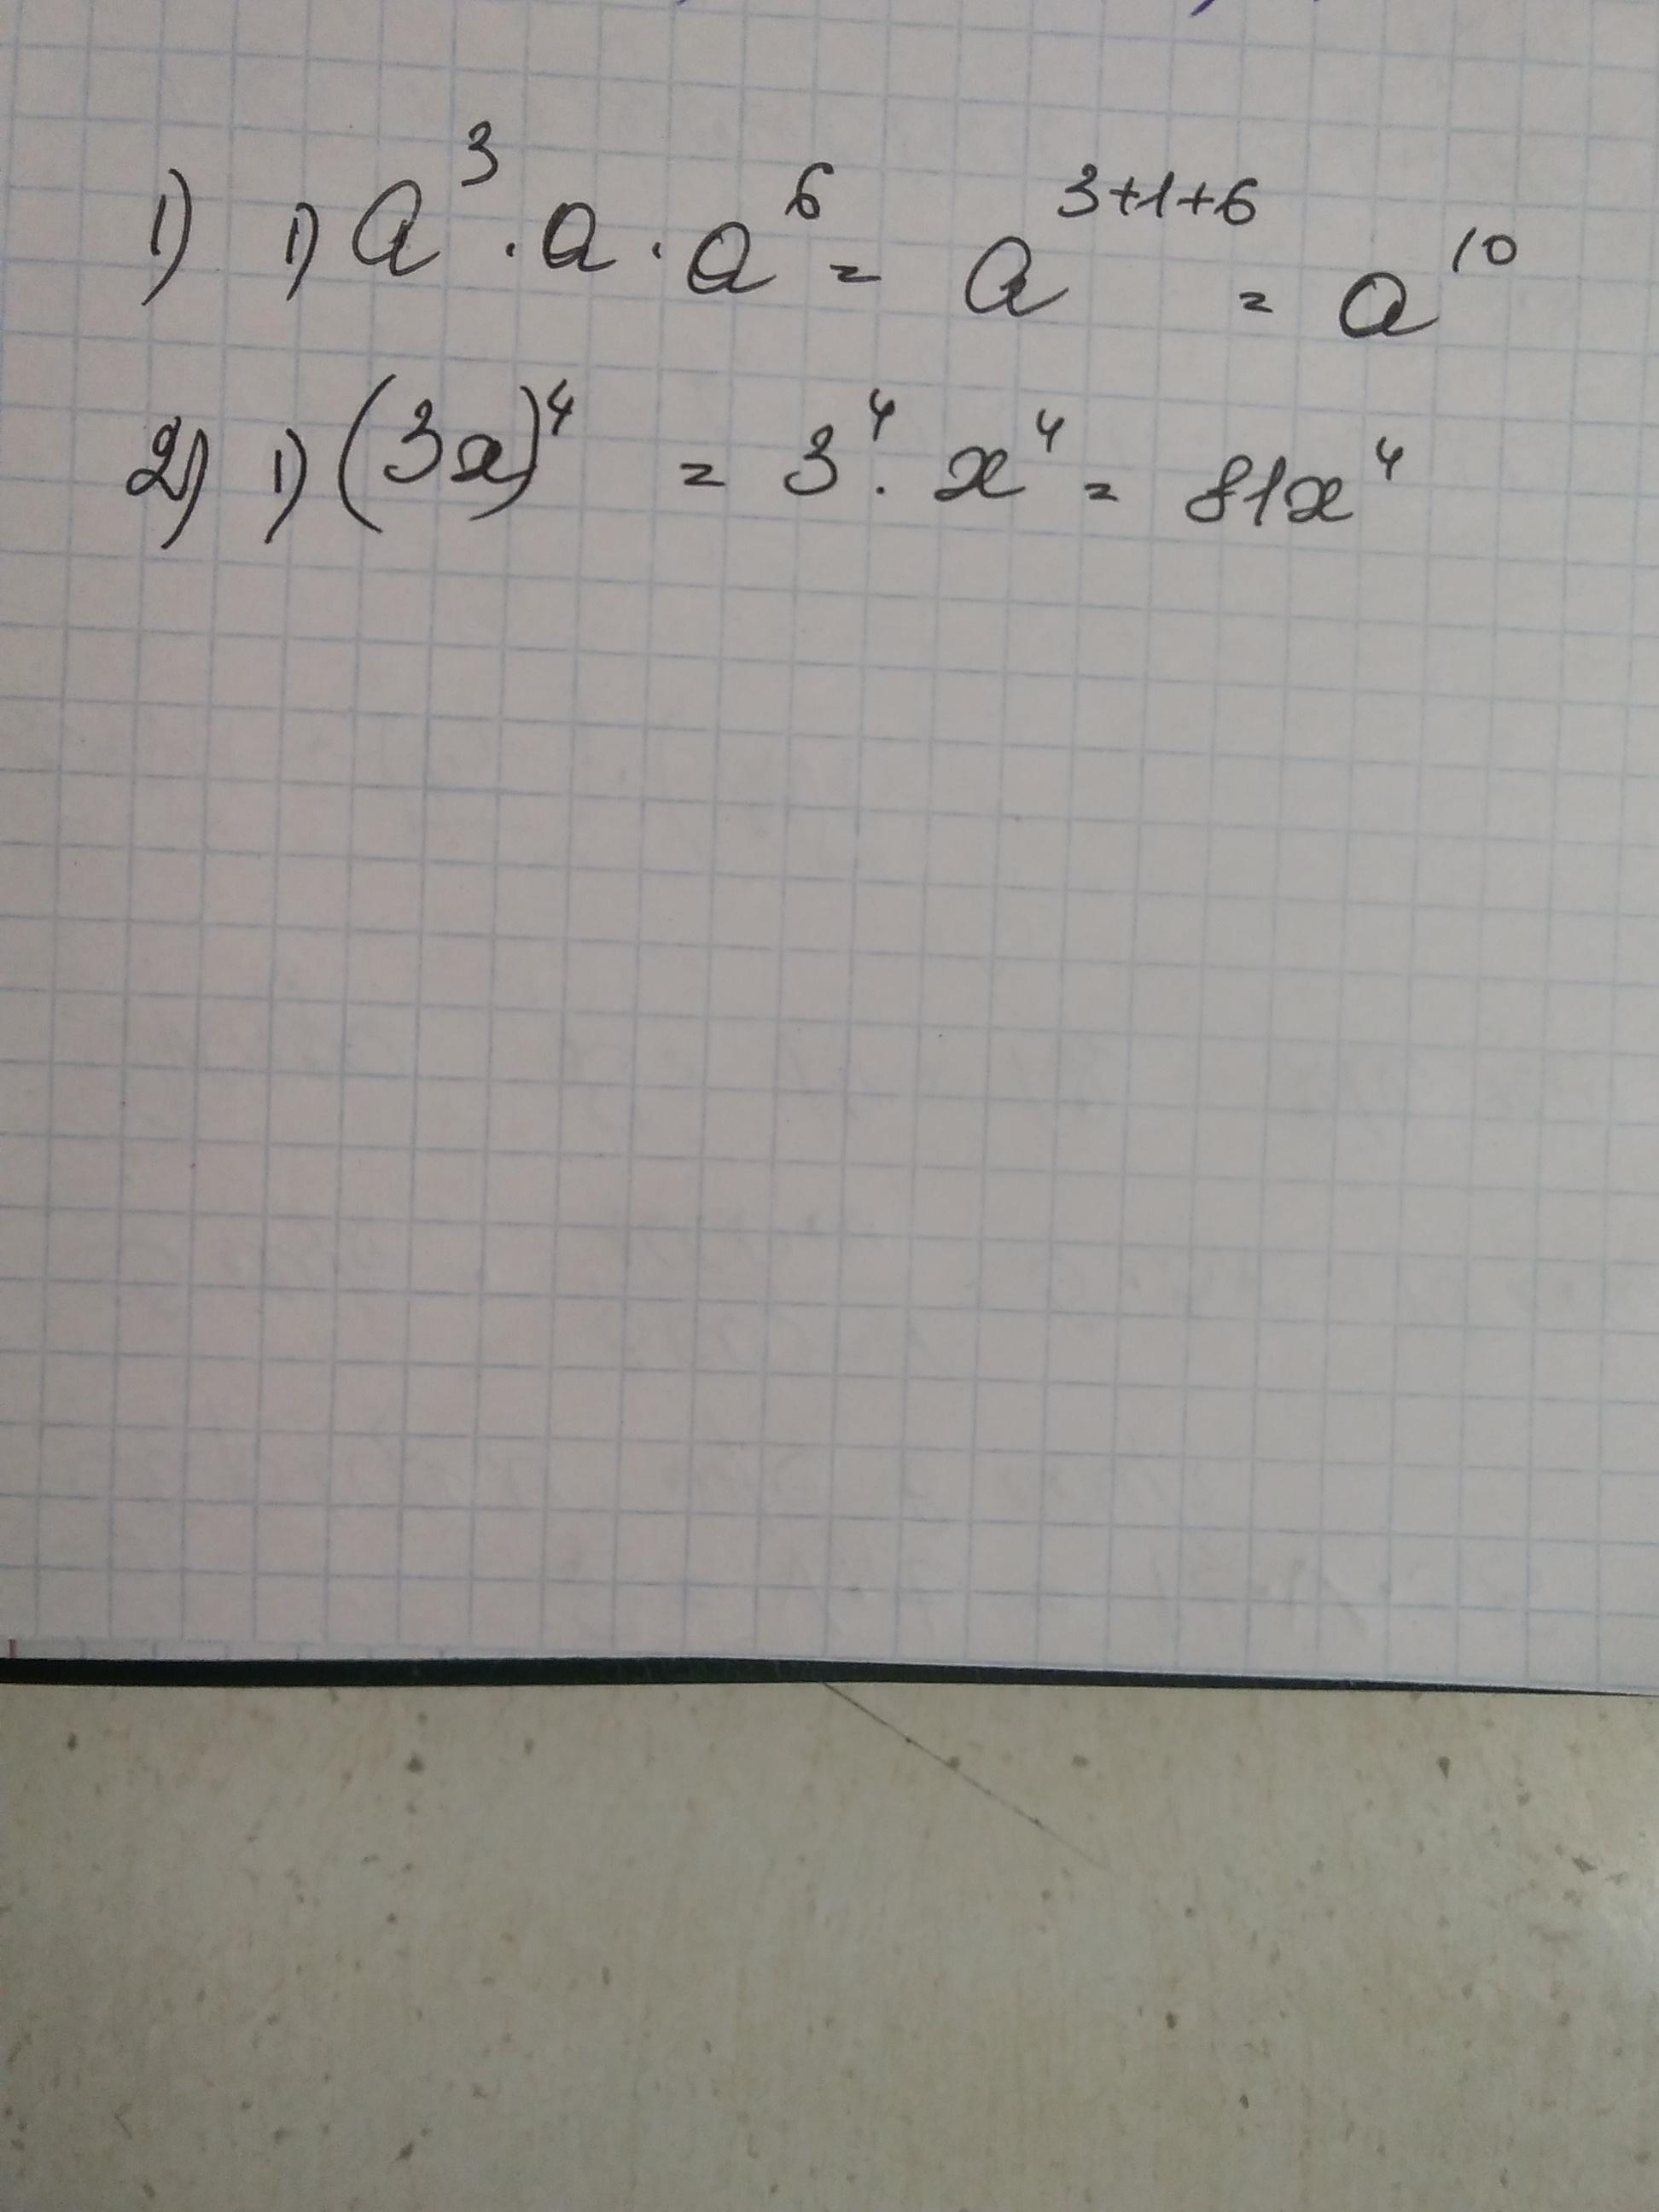 1) 1) a³ · a · a⁶ = a³⁺¹⁺⁶ = a¹⁰
2) 1) (3x)⁴ = 3⁴ · x⁴ = 81x⁴